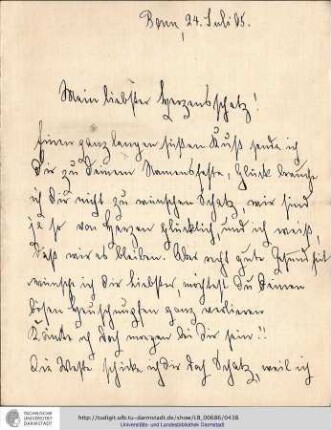 Bonn, 24. Juli 05.
Mein liebster Herzensschatz!
Einen ganz langen süßen Kuß sende ich
Dir zu Deinem Namensfeste, Glück brauche
ich Dir nicht zu wünschen Schatz, wir sind
ja so von Herzen glücklich, und ich weiß,
daß wir es bleiben. Aber recht gute Gesundheit
wünsche ich Dir Liebster, möchtest Du Deinen
bösen Heuschnupfen ganz verlieren
Könnte ich doch morgen bei Dir sein!!
Die Weste schicke ich Dir doch Schatz, weil ich
TECHNISCHE
UNIVERSITÄT
DARMSTADT
http://tudigit.ulb.tu-darmstadt.de/show/LB_00686/0438
Universitäts- und Landesbibliothek Darmstadt